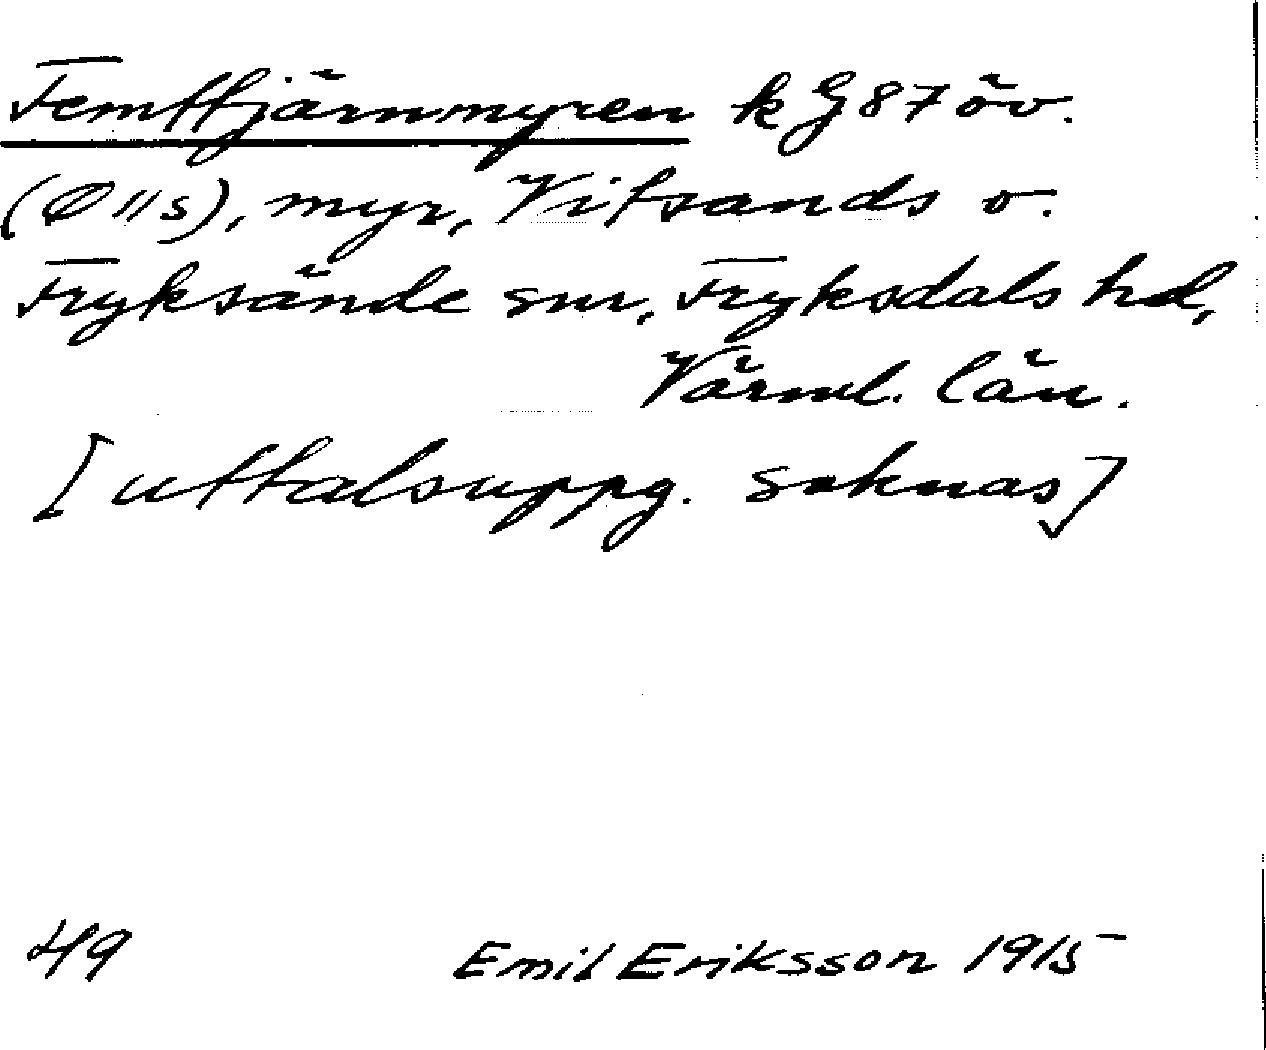 Femtjärnmyren k G 87 öv.
(Ø 11 s), myr, Vitsands o.
Fryksände snr, Fryksdals hd,
Värml. län.
[uttalsuppg. saknas]
49 Emil Eriksson 1915